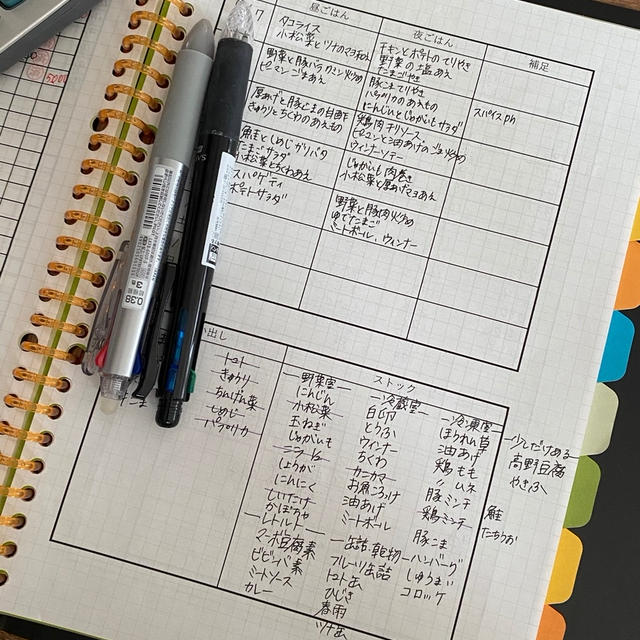 昼ごはん
夜ごはん
補足
7
タコライス
小松菜とツナのマヨ和え
野菜と豚バラのミン炒め
ピーマンごまあえ
厚あげと豚こまの甘酢
きゅうりとちくわのあえもの
鮭としめじバタ
たまごサラダ
小松菜とちくわあえ
スパゲティ
ポテトサラダ
チキンとポテトのてりやき
野菜の塩あえ
たまごやき
豚こまてりやき
パプリカのあえもの
にんじんとじゃがいもサラダ
鶏肉チリソース
ピーマンと油あげのごま炒め
ウィンナーソテー
じゃがいも肉巻き
小松菜と厚あげマヨあえ
野菜と豚肉炒め
ゆでたまご
ミートボール、ウィンナー
スパイスPM
5000
0.38
3色
出し
トマト
きゅうり
ちんげん菜
しめじ
パプリカ
ストック
野菜室
にんじん
小松菜
玉ねぎ
じゃがいも
ミニトマト
しょうが
にんにく
しいたけ
かぼちゃ
レトルト
マーボ豆腐素
ビビンバ素
ミートソース
カレー
冷蔵室
白卵
とうふ
ウィンナー
ちくわ
カニカマ
お魚ろっけ
油あげ
ミートボール
缶詰、乾物
フルーツ缶詰
トマト缶
ひじき
春雨
ツナ缶
冷凍室
ほうれん草
油あげ
鶏もも
〃ムネ
豚ミンチ
鶏ミンチ
豚こま
ハンバーグ
しゅうまい
コロッケ
少しだけある
高野豆腐
やきふ
鮭
たちうお